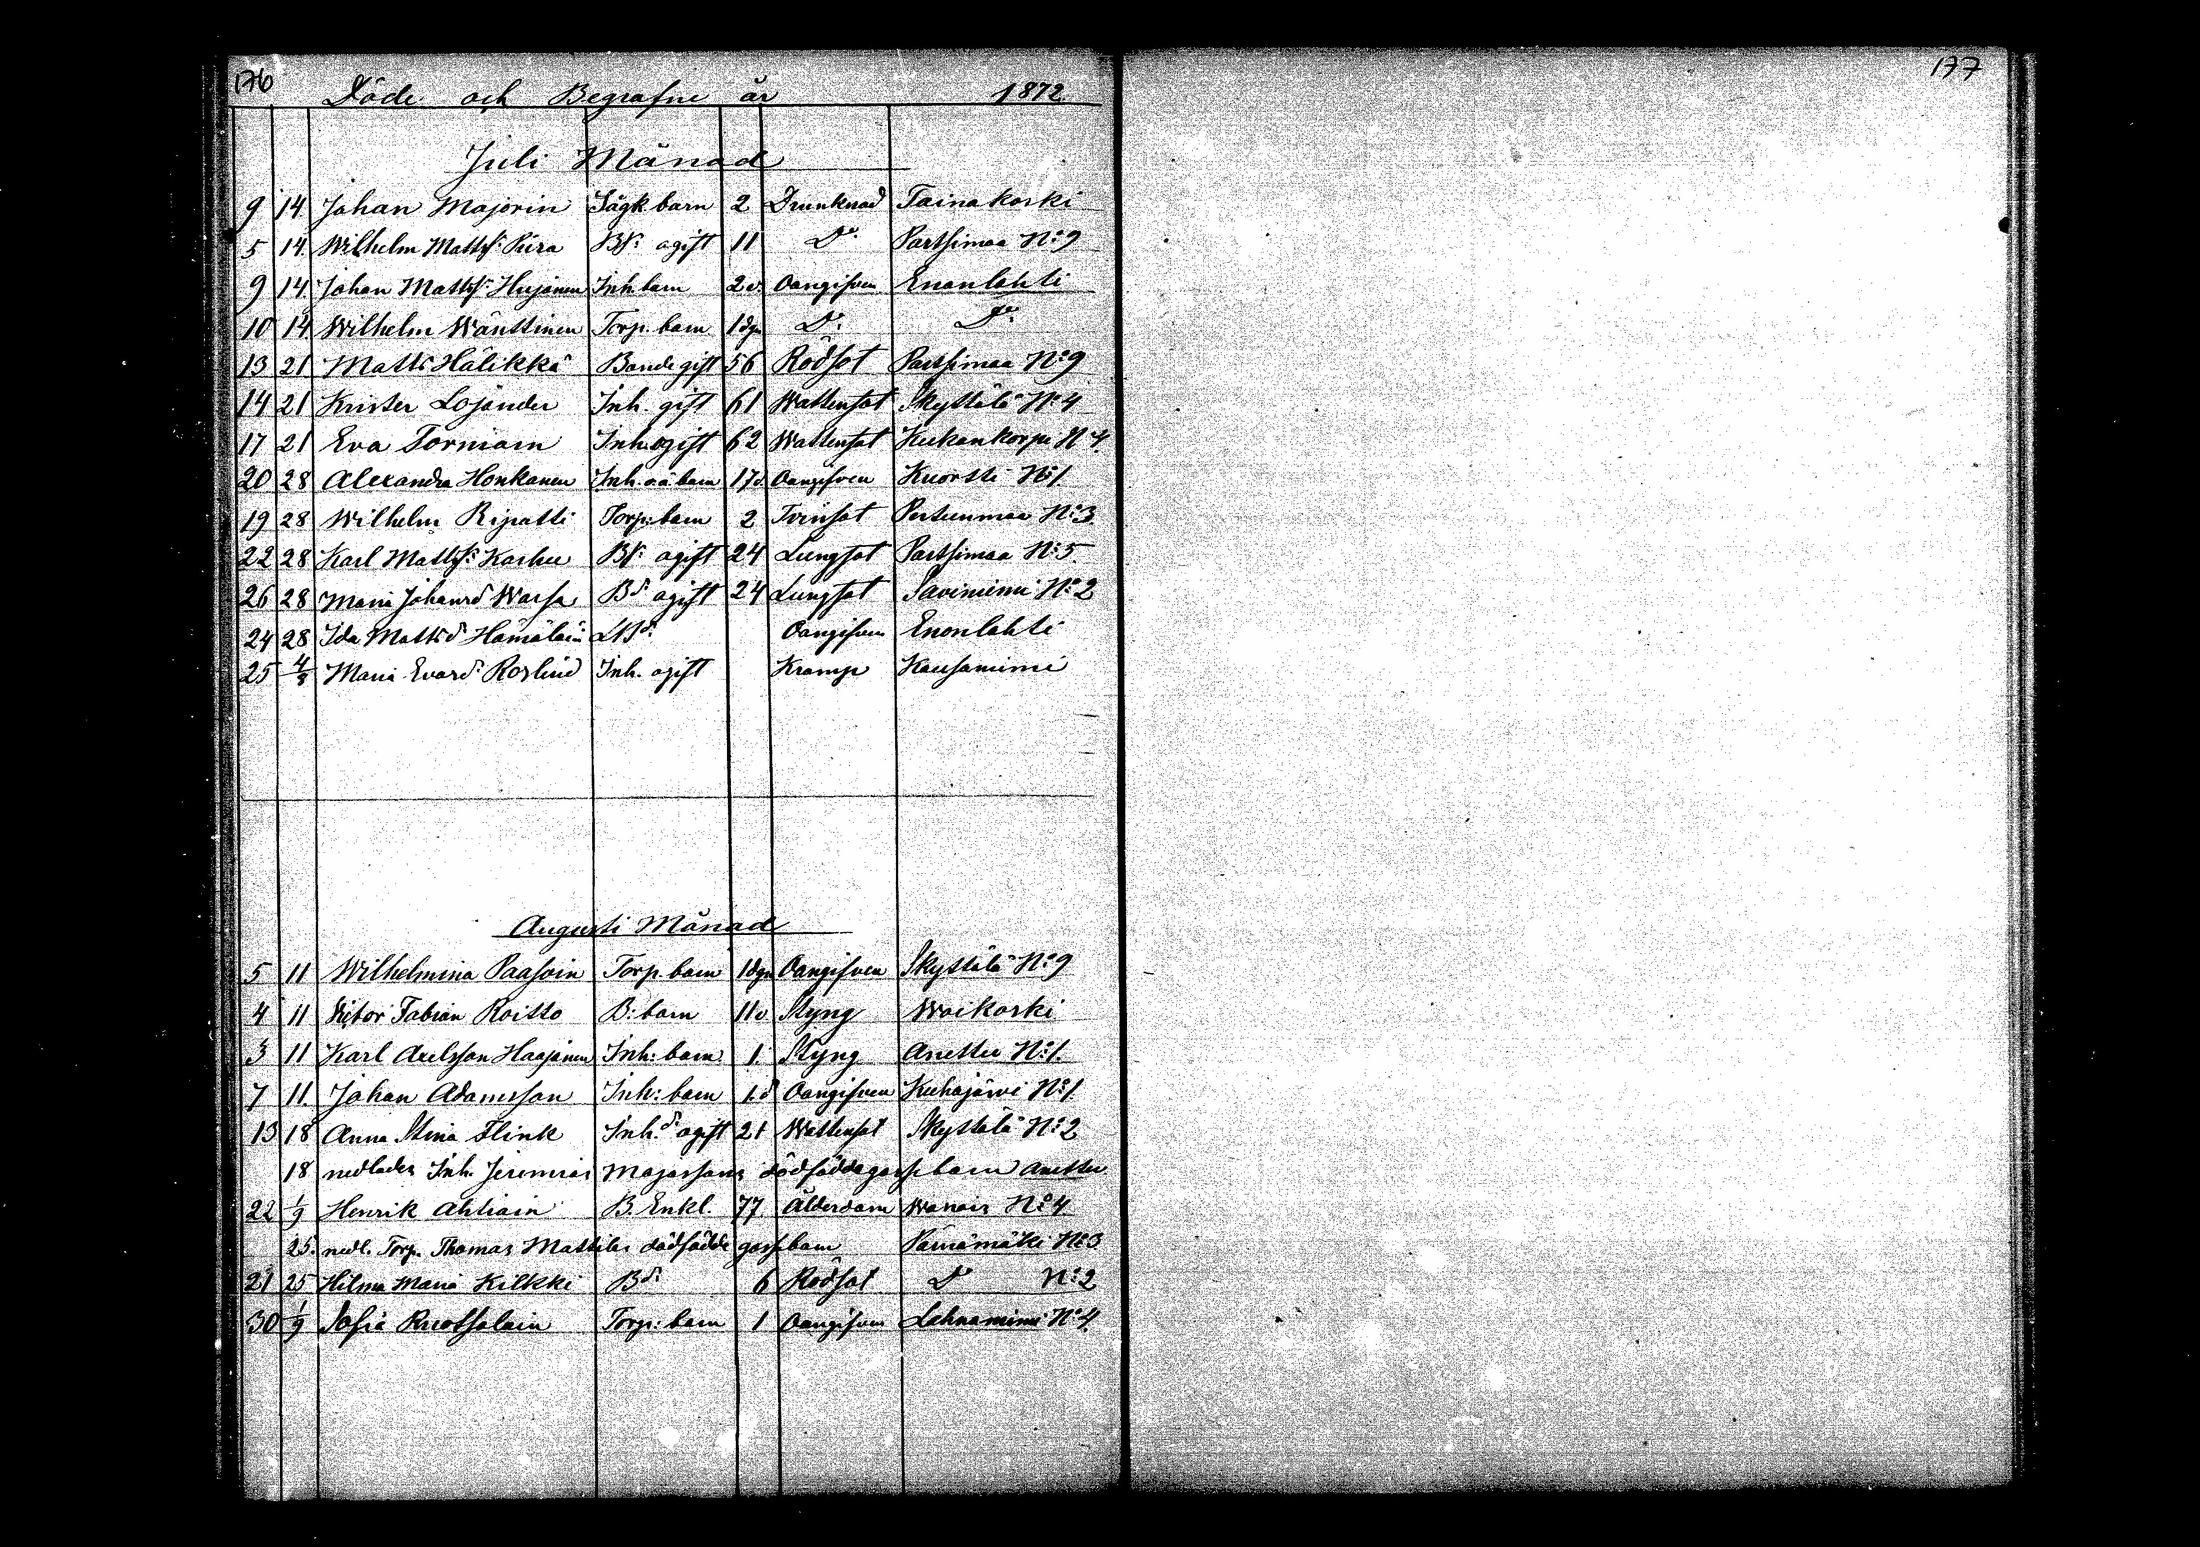 176
177
Döde och Begrafne år 1872.
Juli Månad
9 14 Johan Majorin Sågk. barn 2 Drunknad Tainakoski
5 14. Wilhelm Mattss: Piira Bs: ogift 11 Do: Partsimaa No: 9
9 14. Johan Mattss: Hujanen Inh. barn 2 v. Oangifven Enonlahti
10 14. Wilhelm Wänttinen Torp. barn 1 dgn Do: Do:
13 21 Matts Hälikkä Bonde gift 56 Rödsot Partsimaa No: 9
14 21 Krister Lojander Inh. gift 61 Wattensot Skyttälä No: 4
17 21 Eva Torniain Inh. ogift 62 Wattensot Kukonkorpi No 4.
20 28 Alexandra Honkanen Inh. oä barn 17 d. Oangifven Kuortti No: 1.
19 28 Wilhelm Ripatti Torp: barn 2 Tvinsot Pertunmaa No: 3.
22 28 Karl Mattss: Karhu Bs: ogift 24 Lungsot Partsimaa No: 5.
26 28 Maria Johansd Warsa Bd: ogift 24 Lungsot Saviniemi No: 2
24 28 Ida Mattsd: Hämäläin Oangifven Enonlahti
25 4/8 Maria Evasd: Roslind Inh. ogift Kramp Kausaniemi
Augusti Månad
5 11 Wilhelmina Paasoin Torp. barn 1 dgn Oangifven Skyttälä No: 9
4 11 Viktor Fabian Roitto B: barn 11 v Styng Woikoski
3 11 Karl Axelsson Haajanen Inh: barn 1. Styng Anettu No: 1.
7 11. Johan Adamsson Inh: barn 1. d Oangifven Kuhajärvi No: 1.
13 18 Anna Stina Flink Inh.d: ogift 21 Wattensot Skyttälä No: 2
18 nedlades Inh. Jeremias Majassons dödfödda gossebarn Anettu
22 1/9 Henrik Ahliain B. Enkl. 77. Ålderdom Wanois No: 4
25. nedl. Torp. Thomas Mattilas dödfödde gossebarn No: 3
21 25 Hilma Maria Kilkki Bd: 6 Rödsot Do No: 2
30 1/9 Sofia Ruotsalain Torp: barn 1 Oangifven Lahnaniemi No: 4.